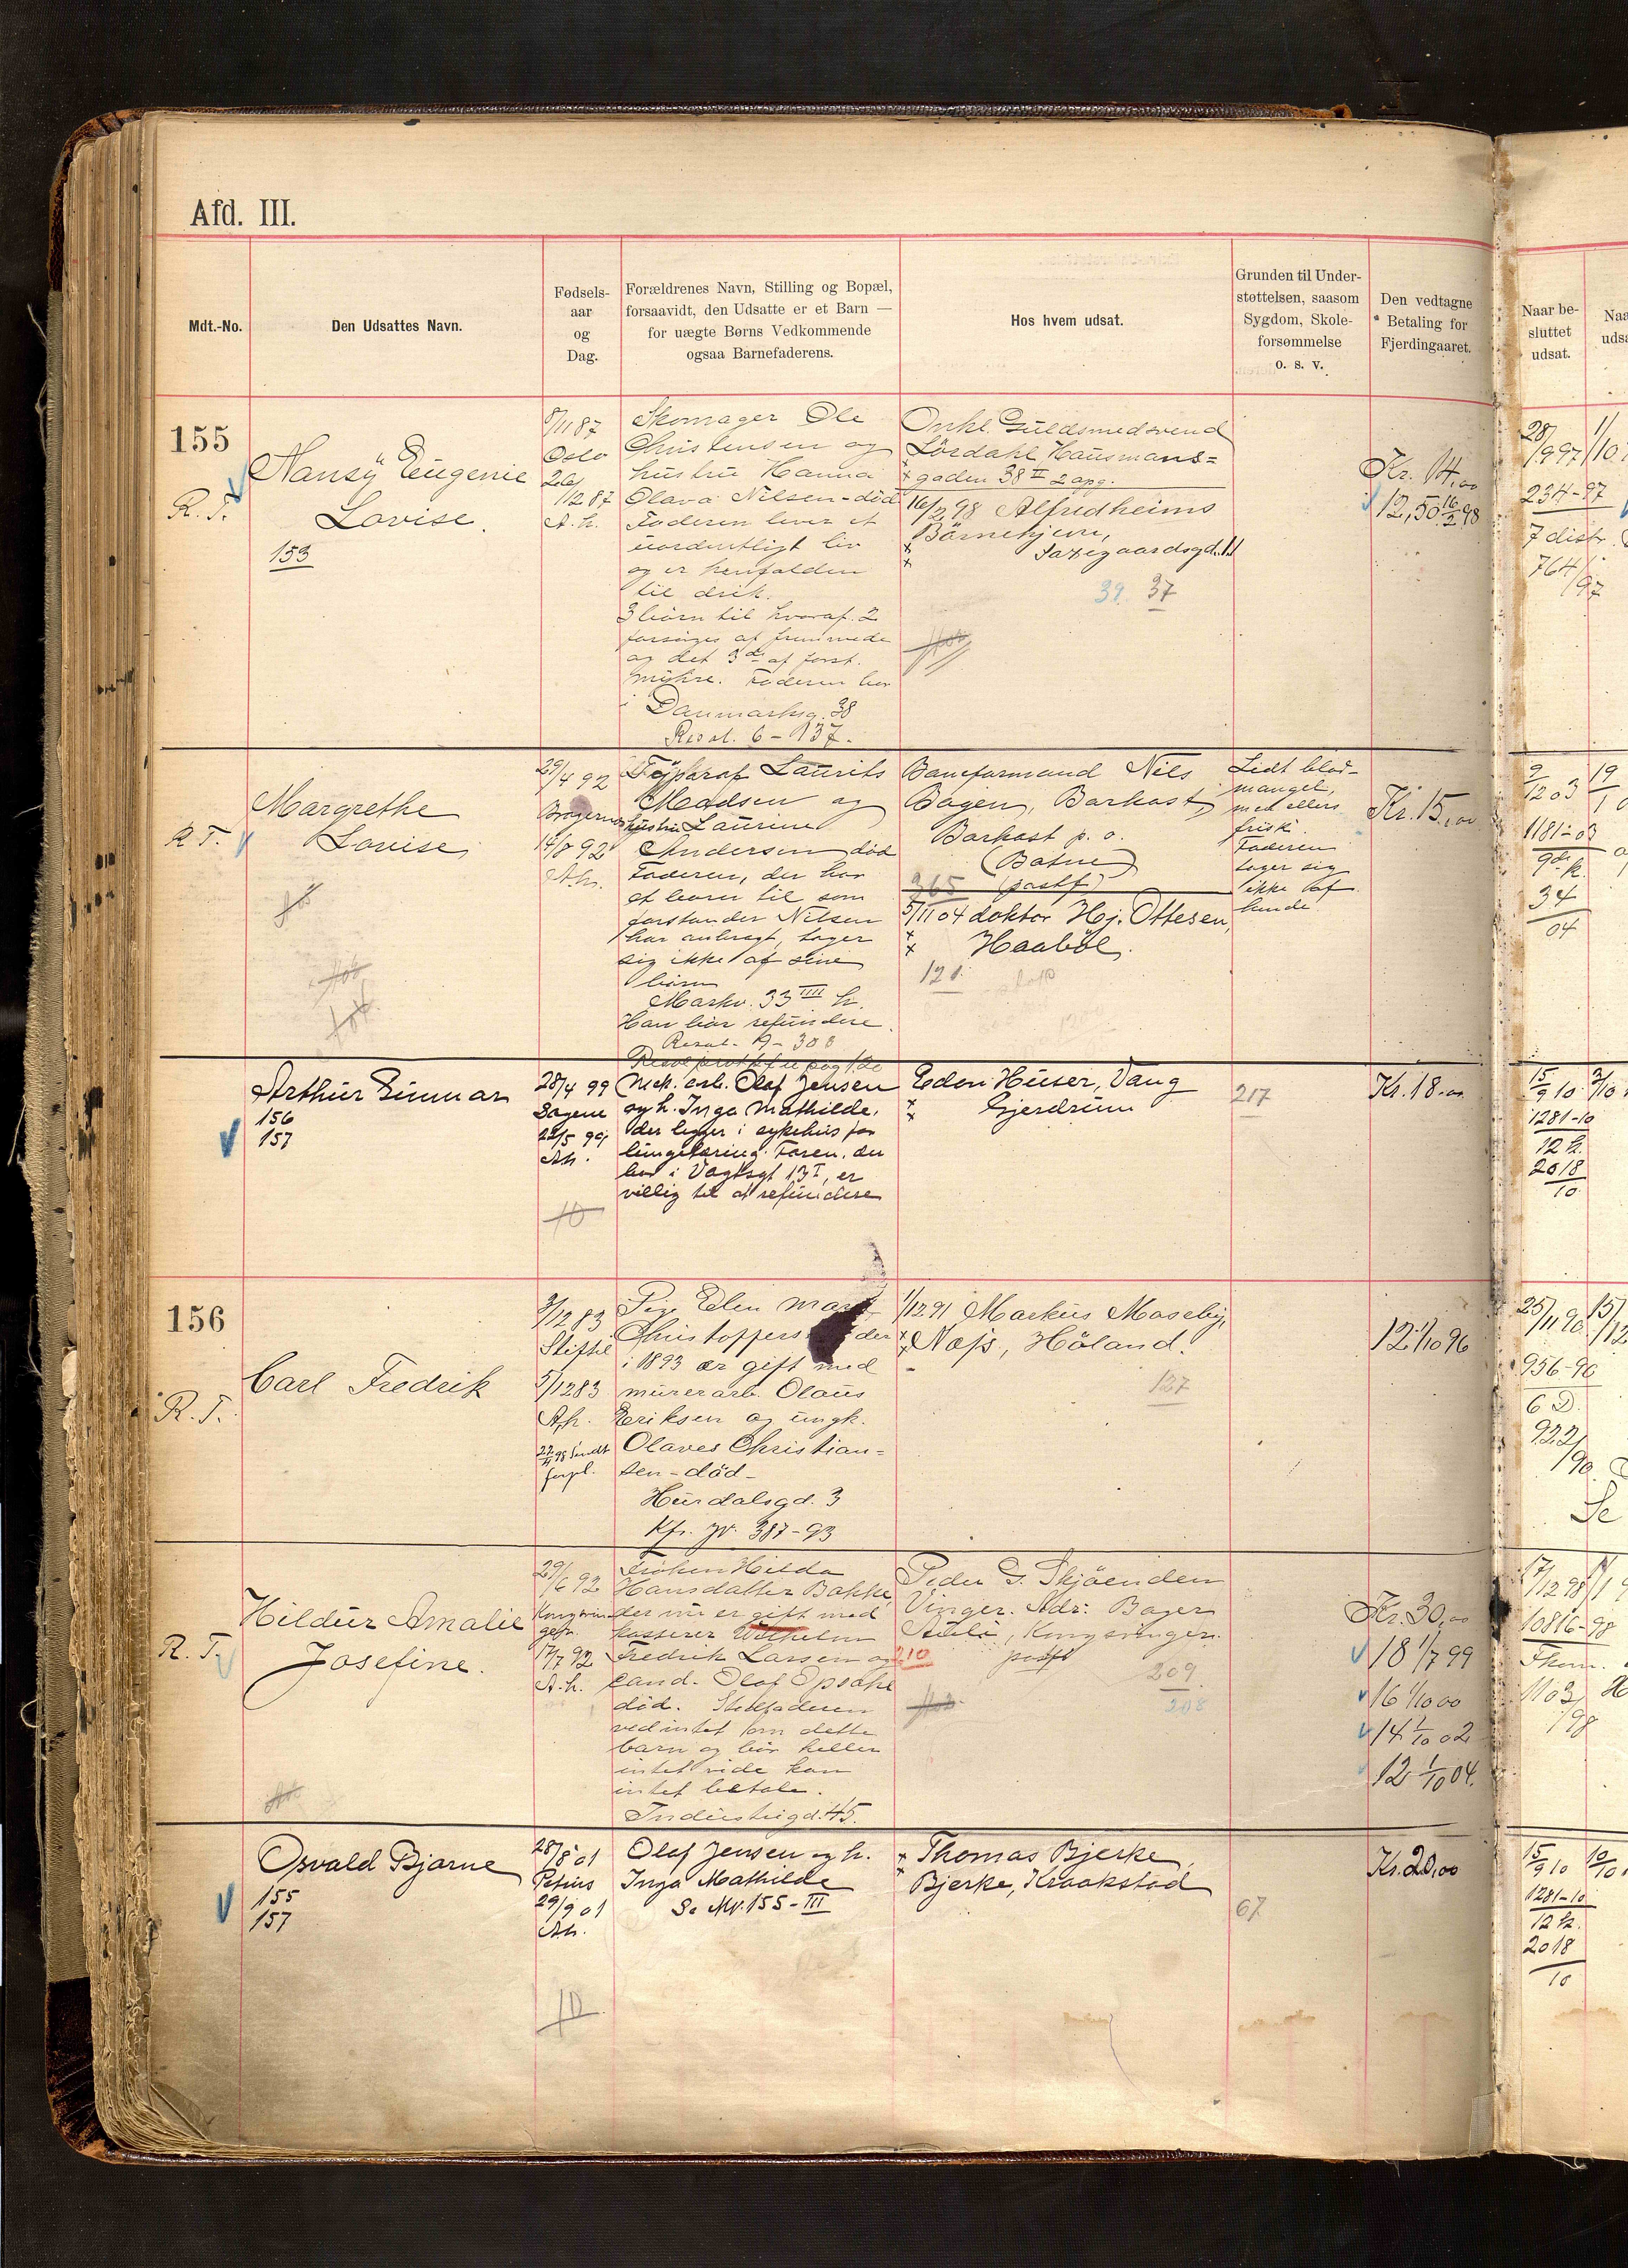 Afd. III.
Mdt.-No.
Den Udsattes Navn.
Fødsels-
aar
og
Dag.
Forældrenes Navn, Stilling og Bopæl,
forsaavidt, den Udsatte er et Barn —
for uægte Børns Vedkommende
ogsaa Barnefaderens.
Hos hvem udsat.
Grunden til Under-
støttelsen, saasom
Sygdom, Skole-
forsømmelse
o. s. v.
Den vedtagne
Betaling for
Fjerdingaaret.
Naar be-
sluttet
udsat.
155
R. T.
Nansy Eugenie
Lovise.
153
8/11 87
Oslo
26/
1/2 87
A. h.
Skomager Ole
Christensen og
hustru Hanna
Olava Nilsen - död
Faderen lever et
uordentligt liv
og er henfalden
til drik.
3 börn til hvoraf 2
forsörges af fremmede
og det 3de af forst.
Myhre. Faderen bor
i Danmarksg. 38
Resol. 6 - 137.
Onkl. Guldsmedsvend
Lördahl Hausmans=
gaden 38 II 2 opg.
16/2 98 Alfredheims
Börnehjem,
Saxegaardsgd. 11
39. 37
Kr. 14,00
12,50 16/2 98
28/9 97
234-97
7 distr.
764/97
R T.
Margrethe
Lovise
29/4 92
Bragernes
14/8 92
A.h.
Laurits
Madsen og
hustru Laurine
Andersen död
Faderen, der har
et barn til som
forstander Nilsen
har anbragt, tager
sig ikke af sine
börn
Markv. 33 IIII h.
Han bör refundere
Resol. 9 - 308
Baneformand Nils
Bagen, Barkost
Barkost p. o.
(Batne)
(postf)
365
5/11 04 doktor Hj. Ottesen,
Haaböl.
121.
Lidt blod-
mangel,
men ellers
frisk.
Faderen
tager sig
ikke af
hende
Kr. 15,00
9/12 03
1181-03
9de k.
34
04
Arthur Gunnar
156
157
28/4 99
Sagene
22/5 99
Ah.
Mek. arb. Olaf Jensen
og h. Inga Mathilde,
der ligger i sykehus for
lungetæring. Faren, der
bor i Vogtsgt 13 I, er
villig til at refundere
Edon Huser, Vang
Gjerdrum
217
Kr. 18.00
15/9 10
1281-10
12 k.
2018
10.
156
R. T.
Carl Fredrik
3/12 83
5/12 83
A.h.
forpl.
Pige Elen
der
i 1893 er gift med
murerarb. Olaus
Eriksen og ungk.
Olaves Christian=
sen - död -
Hurdalsgd. 3
Kfr. jr. 387-93
1/12 91 Markus Maseby,
Næs, Höland.
127
12 1/10 96
25/11 90
956-90
6 D.
922/90
Se
R. T.
Hildur Amalie
Josefine.
29/6 92
Kongsvin
gefr.
17/7 92
A. h.
Fröken Hilda
Hansdatter Bakke
der nu er gift med
kasserer Wilhelm
Fredrik Larsen og
cand. Olaf Opsahl
död. Stedfaderen
ved intet om dette
barn og bör heller
intet vide kan
intet betale.
Industrigd. 45.
Peder G. Skjöenden
Vinger. Adr: Bager
Kongsvinger.
postf
210
209
208
Kr. 30,00
18 1/7 99
16 1/10 00
14 1/10 02
12 1/10 04.
17/12 98
10816-98
1103/98
Osvald Bjarne
155
157
28/8 01
Petrus
29/9 01
Ah.
Olaf Jensen og h.
Inga Mathilde
Se Mv. 155 - III
Thomas Bjerke,
Bjerke, Kraakstad
67
Kr. 20,00
15/9 10
1281-10
12 k.
2018
10